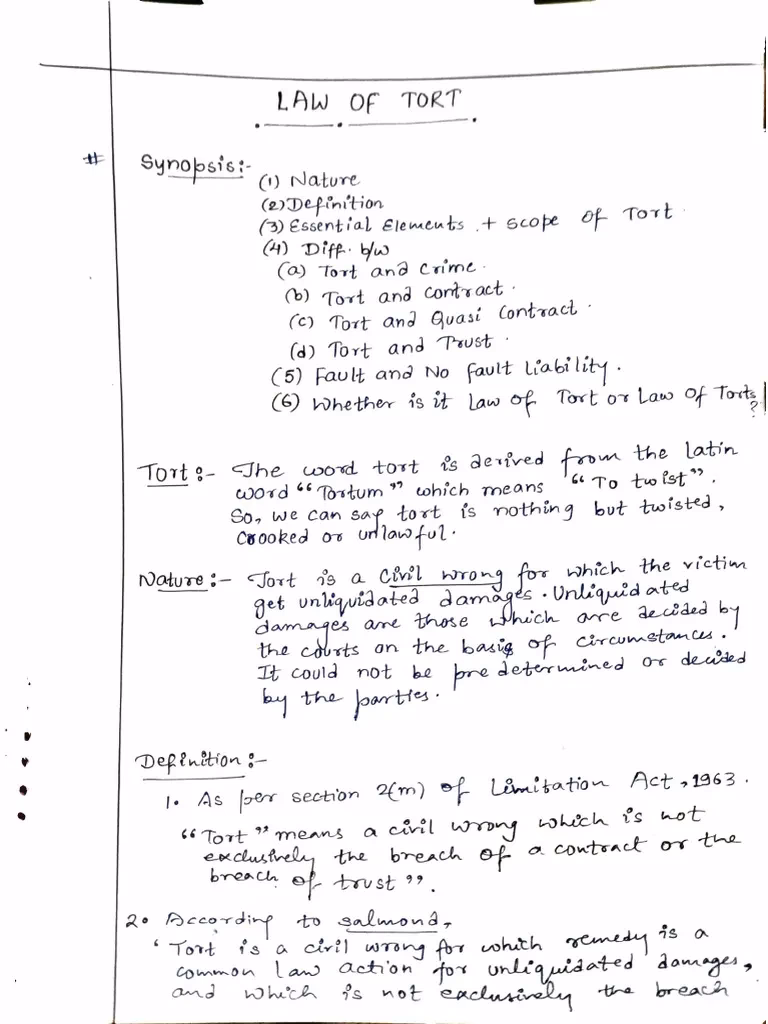 LAW OF TORT
# Synopsis:-
(1) Nature
(2) Definition
(3) Essential Elements + scope of Tort
(4) Diff. b/w
(a) Tort and crime.
(b) Tort and contract.
(c) Tort and Quasi Contract.
(d) Tort and Trust.
(5) Fault and No fault liability.
(6) Whether is it Law of Tort or Law of Torts?
Tort :- The word tort is derived from the latin
word "Tortum" which means "To twist".
So, we can say tort is nothing but twisted,
crooked or unlawful.
Nature :- Tort is a civil wrong for which the victim
get unliquidated damages. Unliquidated
damages are those which are decided by
the courts on the basis of circumstances.
It could not be predetermined or decided
by the parties.
Definition :-
1. As per section 2(m) of Limitation Act, 1963.
"Tort" means a civil wrong which is not
exclusively the breach of a contract or the
breach of trust".
2. According to salmond,
'Tort is a civil wrong for which remedy is a
common law action for unliquidated damages,
and which is not exclusively the breach